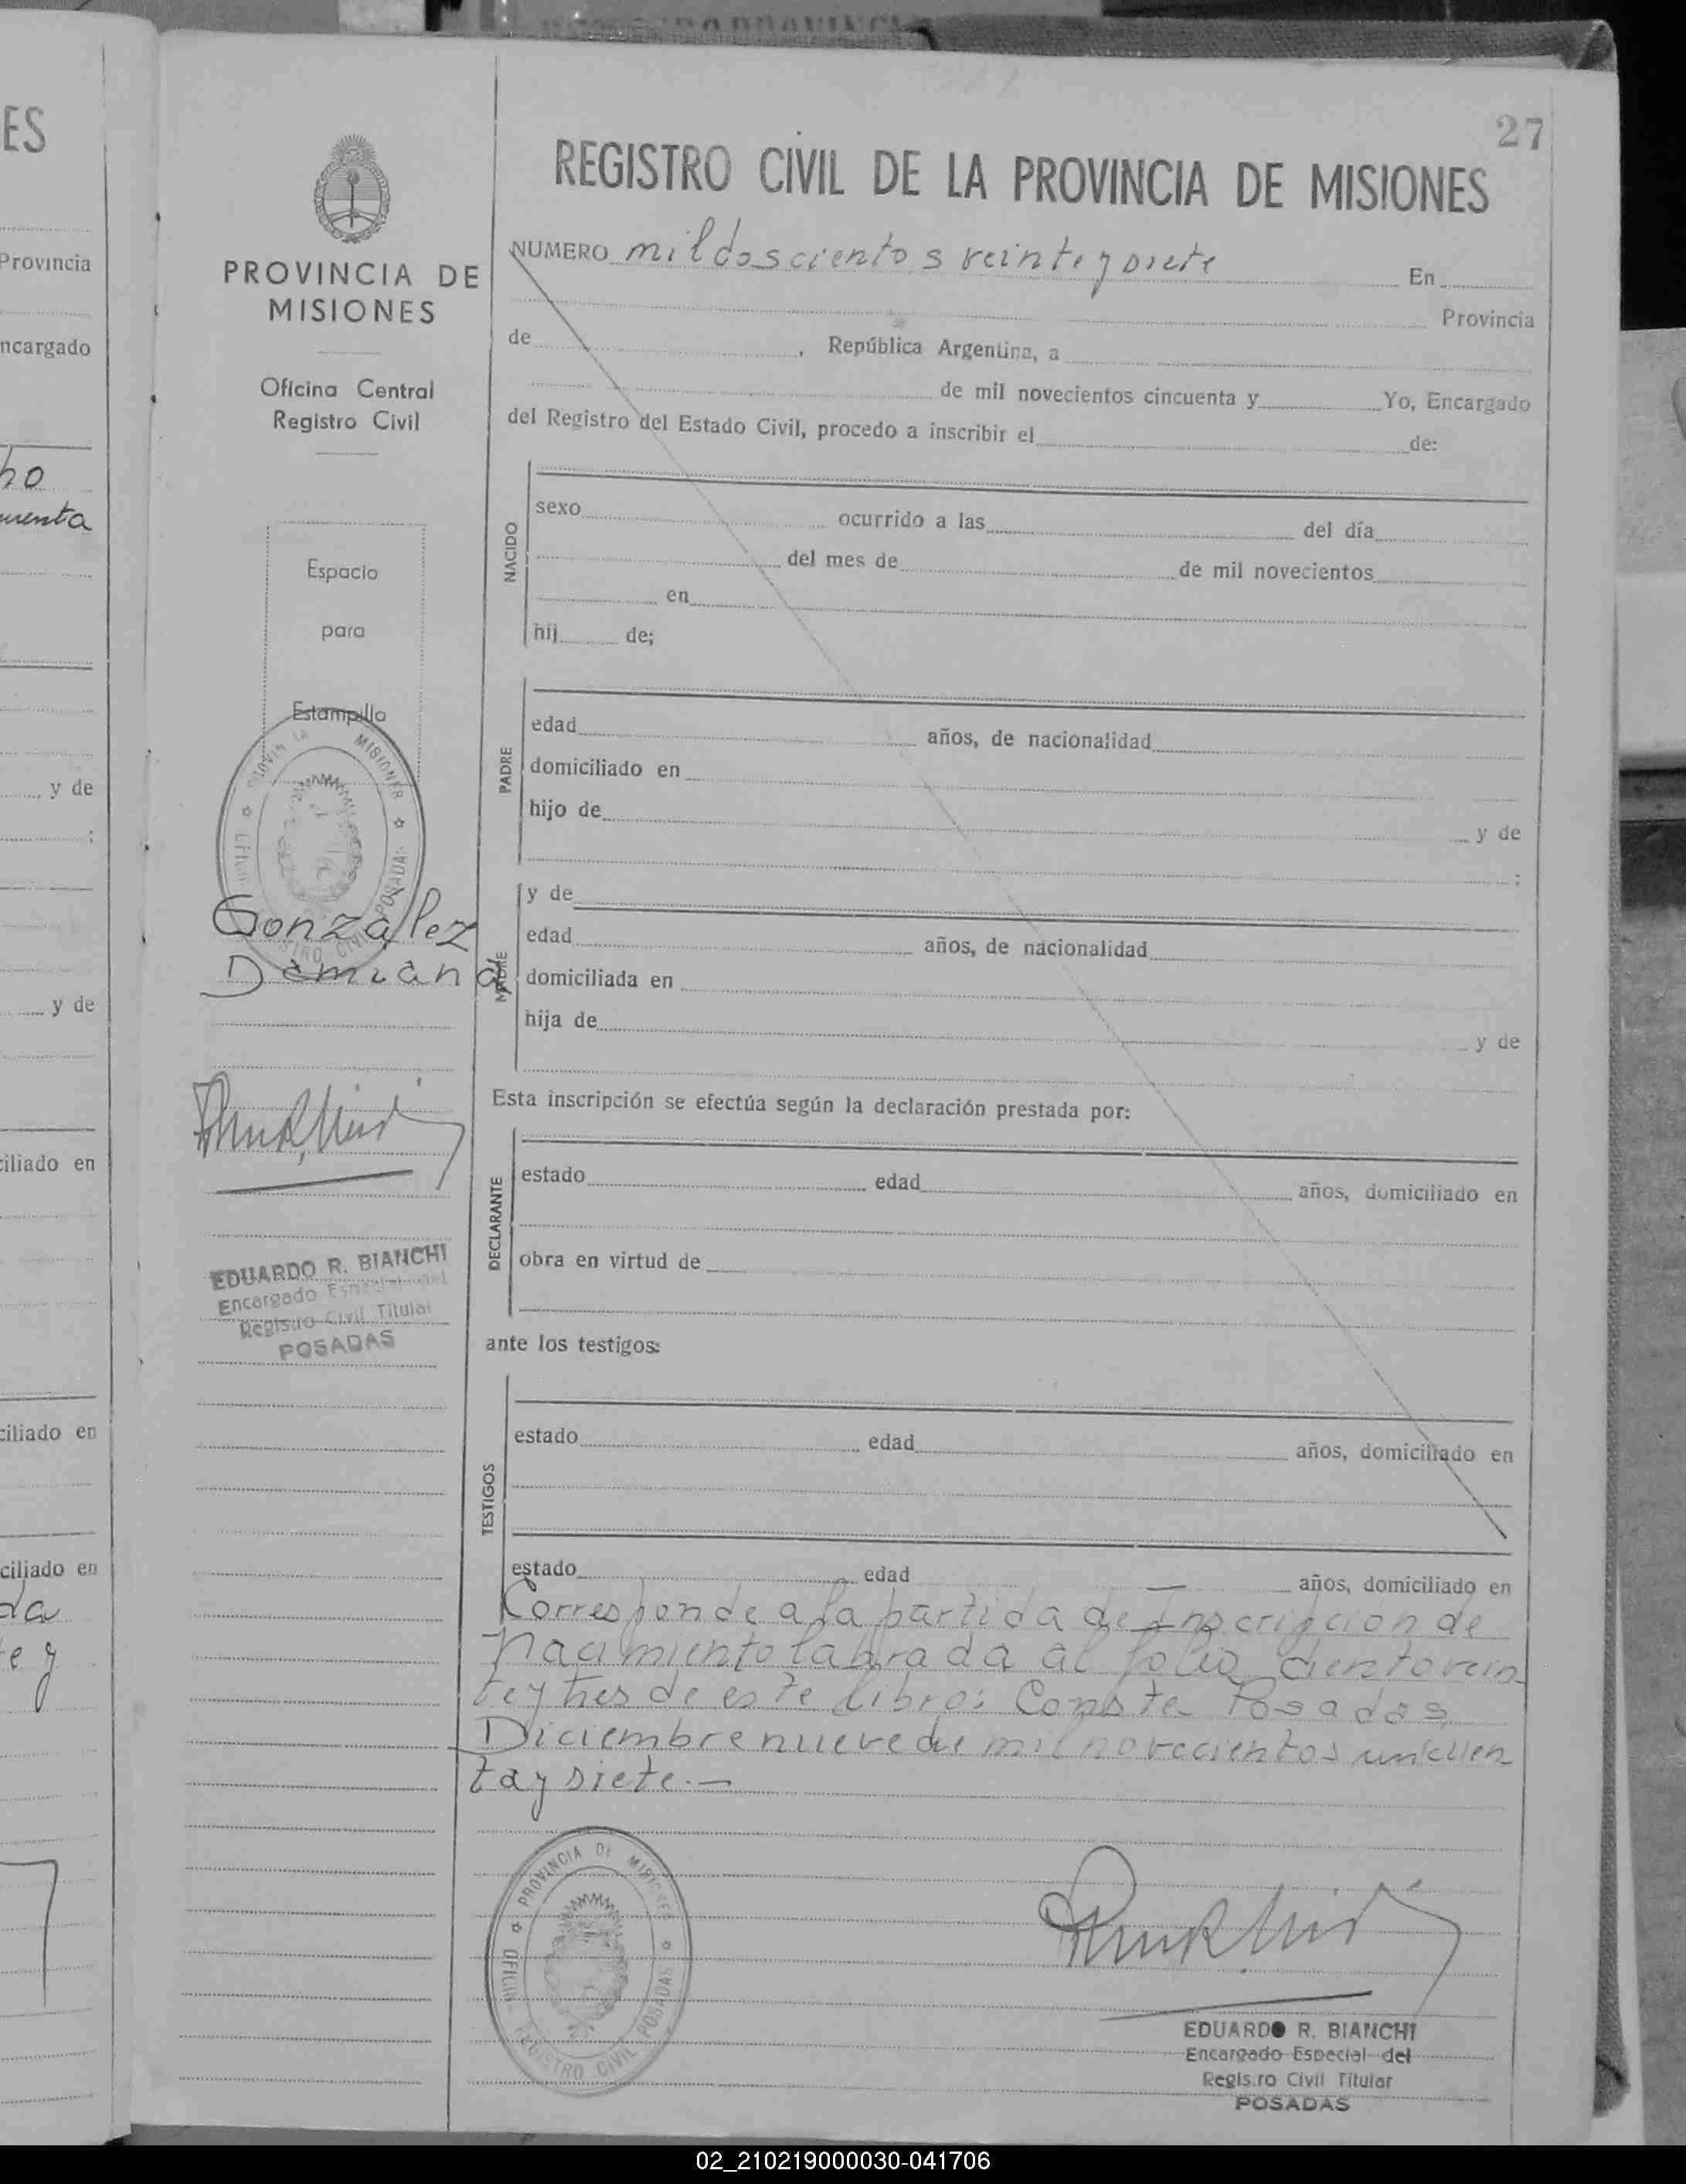 ES
Provincia
ncargado
ho
uenta
y de
;
y de
ciliado en
ciliado en
ciliado en
da
e y
27
PROVINCIA DE
MISIONES
Oficina Central
Registro Civil
Espacio
para
Estampilla
MISIONES
POSADAS
Gonzalez
Damiana
EDUARDO R. BIANCHI
Encargado Especial del
Registro Civil Titular
POSADAS
REGISTRO CIVIL DE LA PROVINCIA DE MISIONES
NUMERO mil doscientos veinte y siete En
Provincia
de , República Argentina, a
de mil novecientos cincuenta y Yo, Encargado
del Registro del Estado Civil, procedo a inscribir el de:
NACIDO
sexo ocurrido a las del día
del mes de de mil novecientos
en
hij de;
PADRE
edad años, de nacionalidad
domiciliado en
hijo de y de
;
MADRE
y de
edad años, de nacionalidad
domiciliada en
hija de y de
Esta inscripción se efectúa según la declaración prestada por:
DECLARANTE
estado edad años, domiciliado en
obra en virtud de
ante los testigos:
TESTIGOS
estado edad años, domiciliado en
estado edad años, domiciliado en
Corresponde a la partida de Inscripción de
nacimiento labrada al folio ciento vein
te y tres de este libro: Conste Posadas,
Diciembre nueve de mil novecientos cincuen
ta y siete.—
PROVINCIA DE MISIONES
POSADAS
REGISTRO CIVIL
OFICINA
EDUARDO R. BIANCHI
Encargado Especial del
Regis.ro Civil Titular
POSADAS
02_210219000030-041706